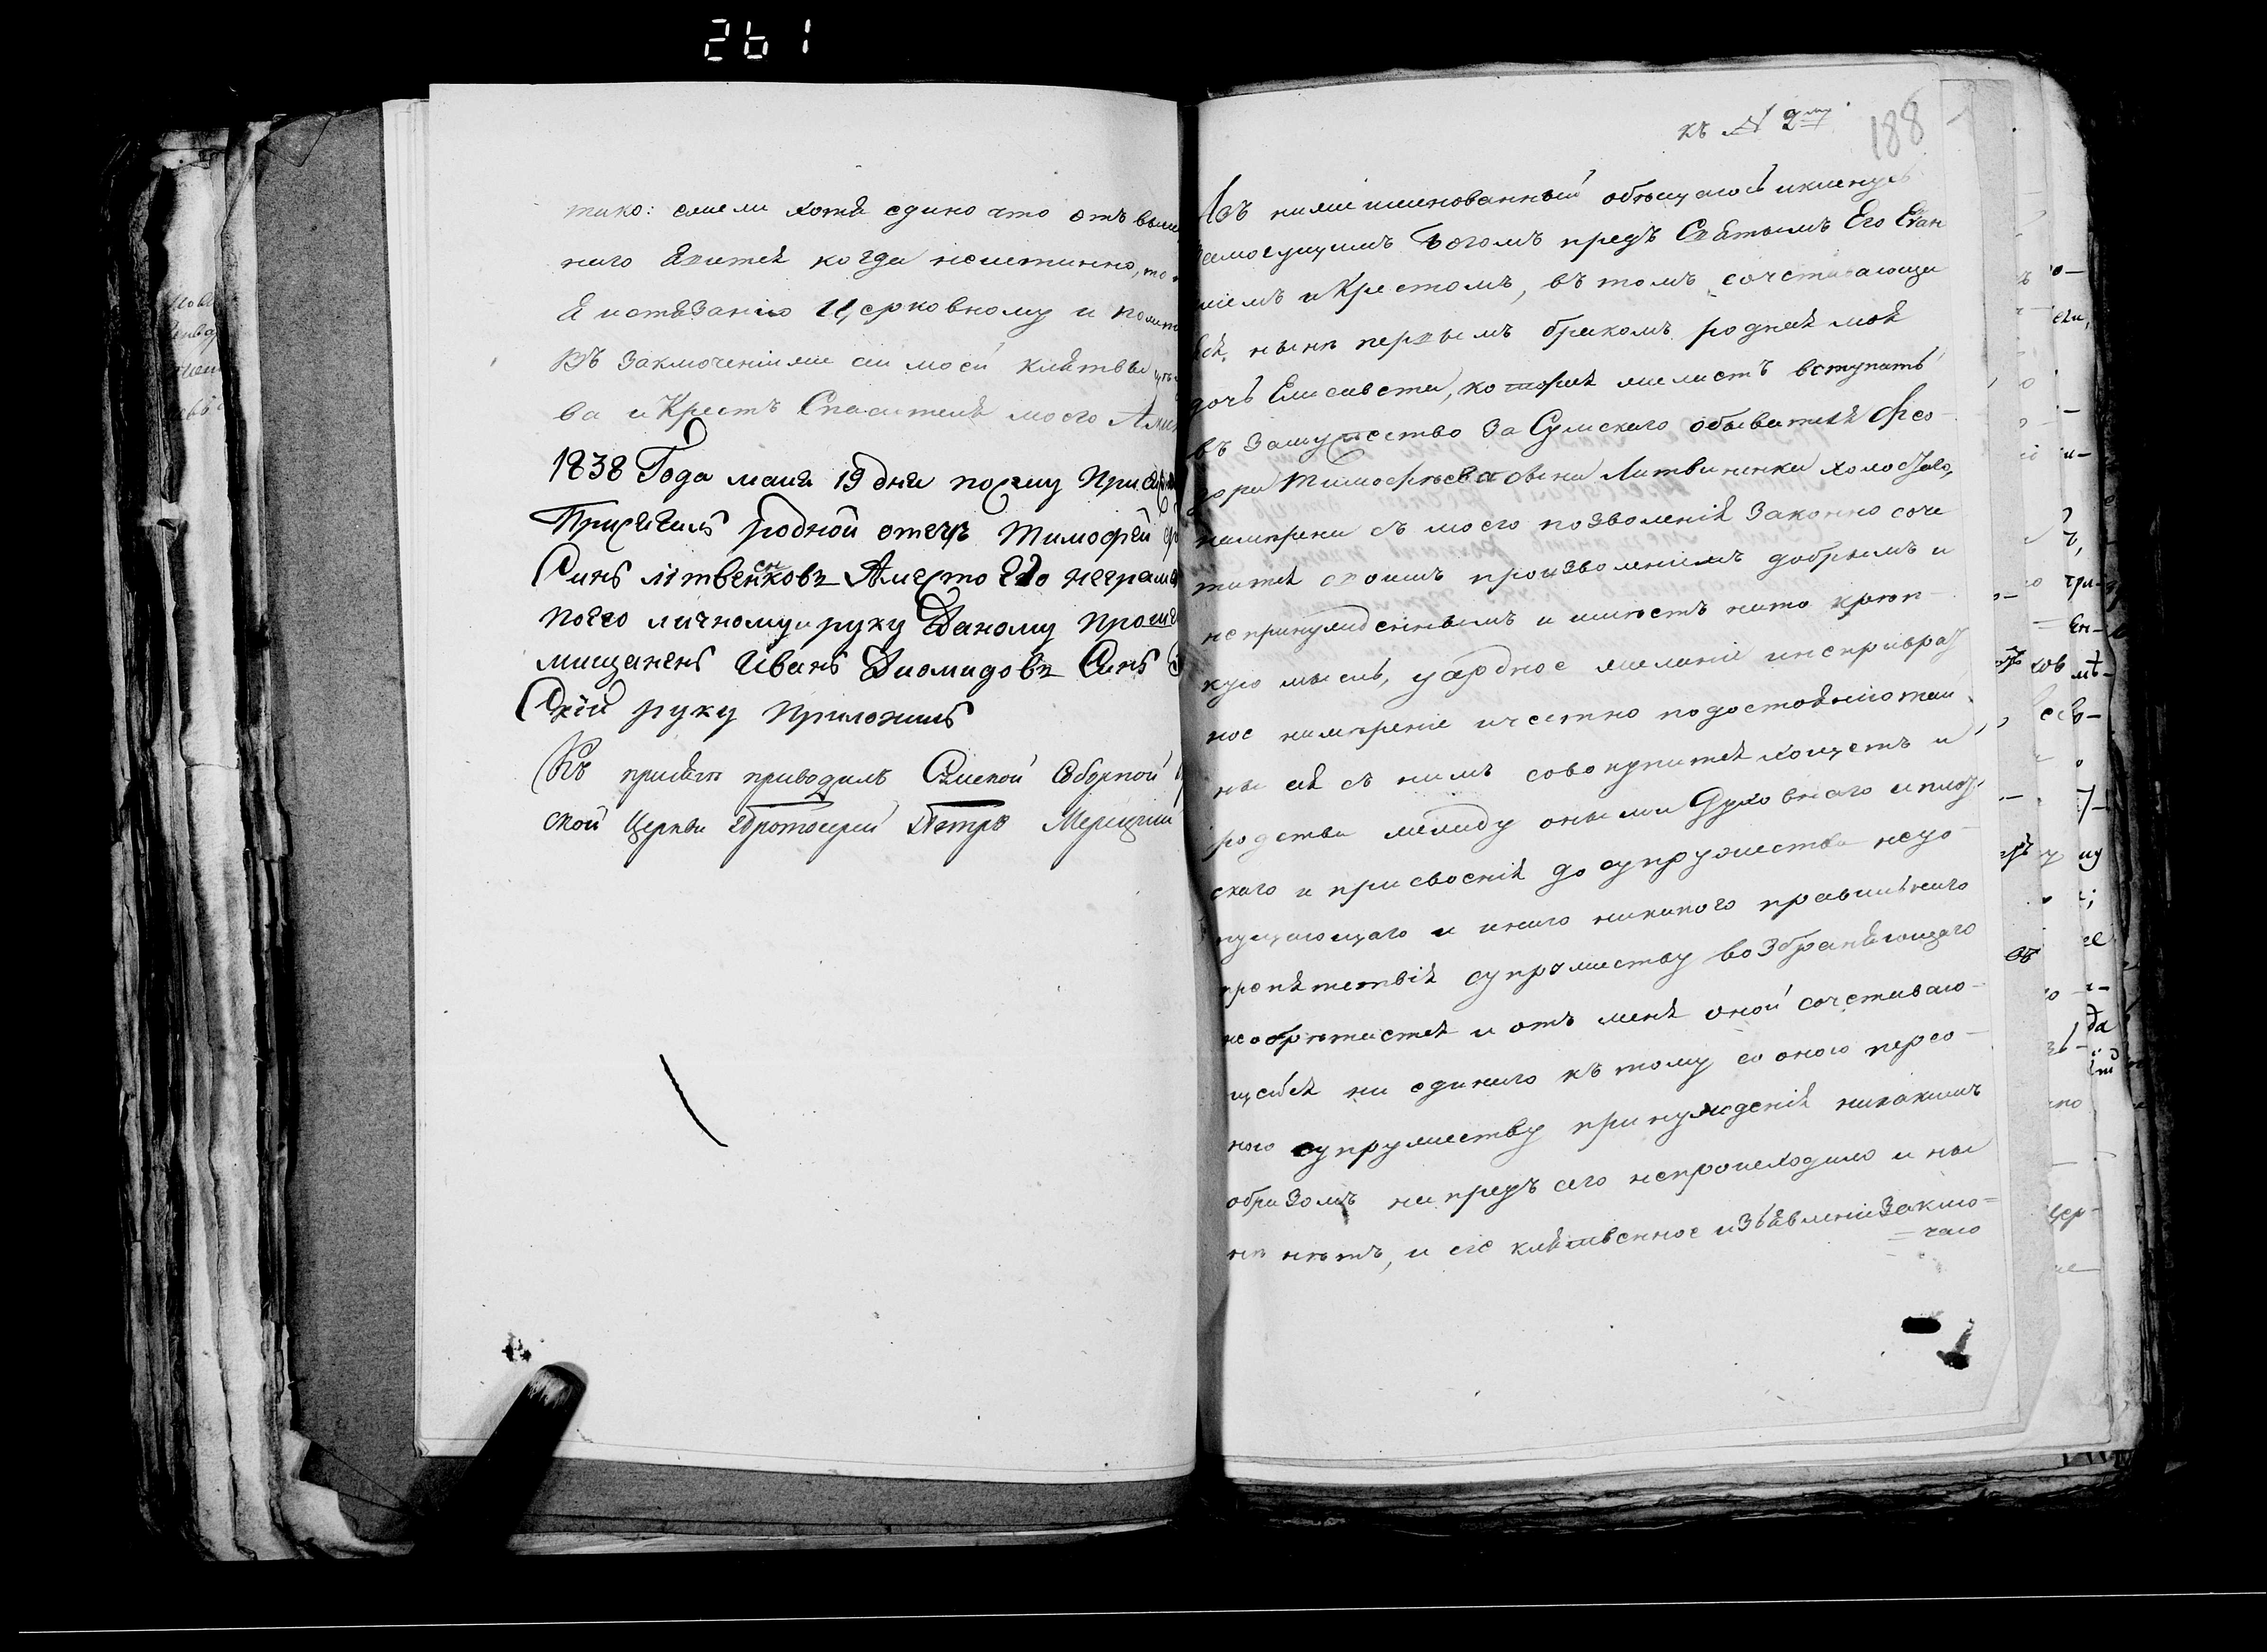 261
тико: ежели хотя едино что отъ выше
наго явится когда неистинно, то
я истязанію Церковному и полит
Въ заключеніяже сей моей клятвы цѣ
ва и Крестъ Спасителя моего Амин
1838 Года мая 19 дня посему
Присягалъ родной отецъ Тимофей
Синъ литвененковъ Аместо Его неграм
поего личному руку Даному проше
мищаненъ Иванъ Диомидовъ Синъ
Скій руку приложилъ
Къ присягѣ приводилъ Сумской Соборной
ской Церкви Протоіерей Петръ
къ № 2му
188
Азъ нижеименованный обѣщаюсь и кленусь
семогущимъ Богомъ предъ Святымъ Его Еван
ліемъ и Крестомъ, въ томъ сочетавающи
ся нынѣ первымъ бракомъ родная моя
дочь Елисавета, которая желаетъ вступать
въ замужество за Сумскаго обывателя Фео
дора Тимофѣева сына Литвиненка холостаго,
намѣрена съ моего позволенія законно соче
татся своимъ произволеніемъ добрымъ и
непринужденнымъ и имѣетъ нато крѣп
кую мысль, усердное желаніе инепривра
ное намѣреніе ичестно подостоянію тай
ны ея съ нимъ совокупится хощетъ и
родства между оными Духовнаго и плот
скаго и присвоенія до супружества недо
пущающаго и инаго никакого правильнаго
препятствія супружеству возбраняющаго
необрѣтается и отъ меня оной сочетаваю
щейся ни единаго къ тому со оною персо
ною супружеству принужденія никакимъ
образомъ напредъ сего непроисходило и ны
нѣ нѣтъ, и сіе клятвенное изъявленіе заклю
чаю